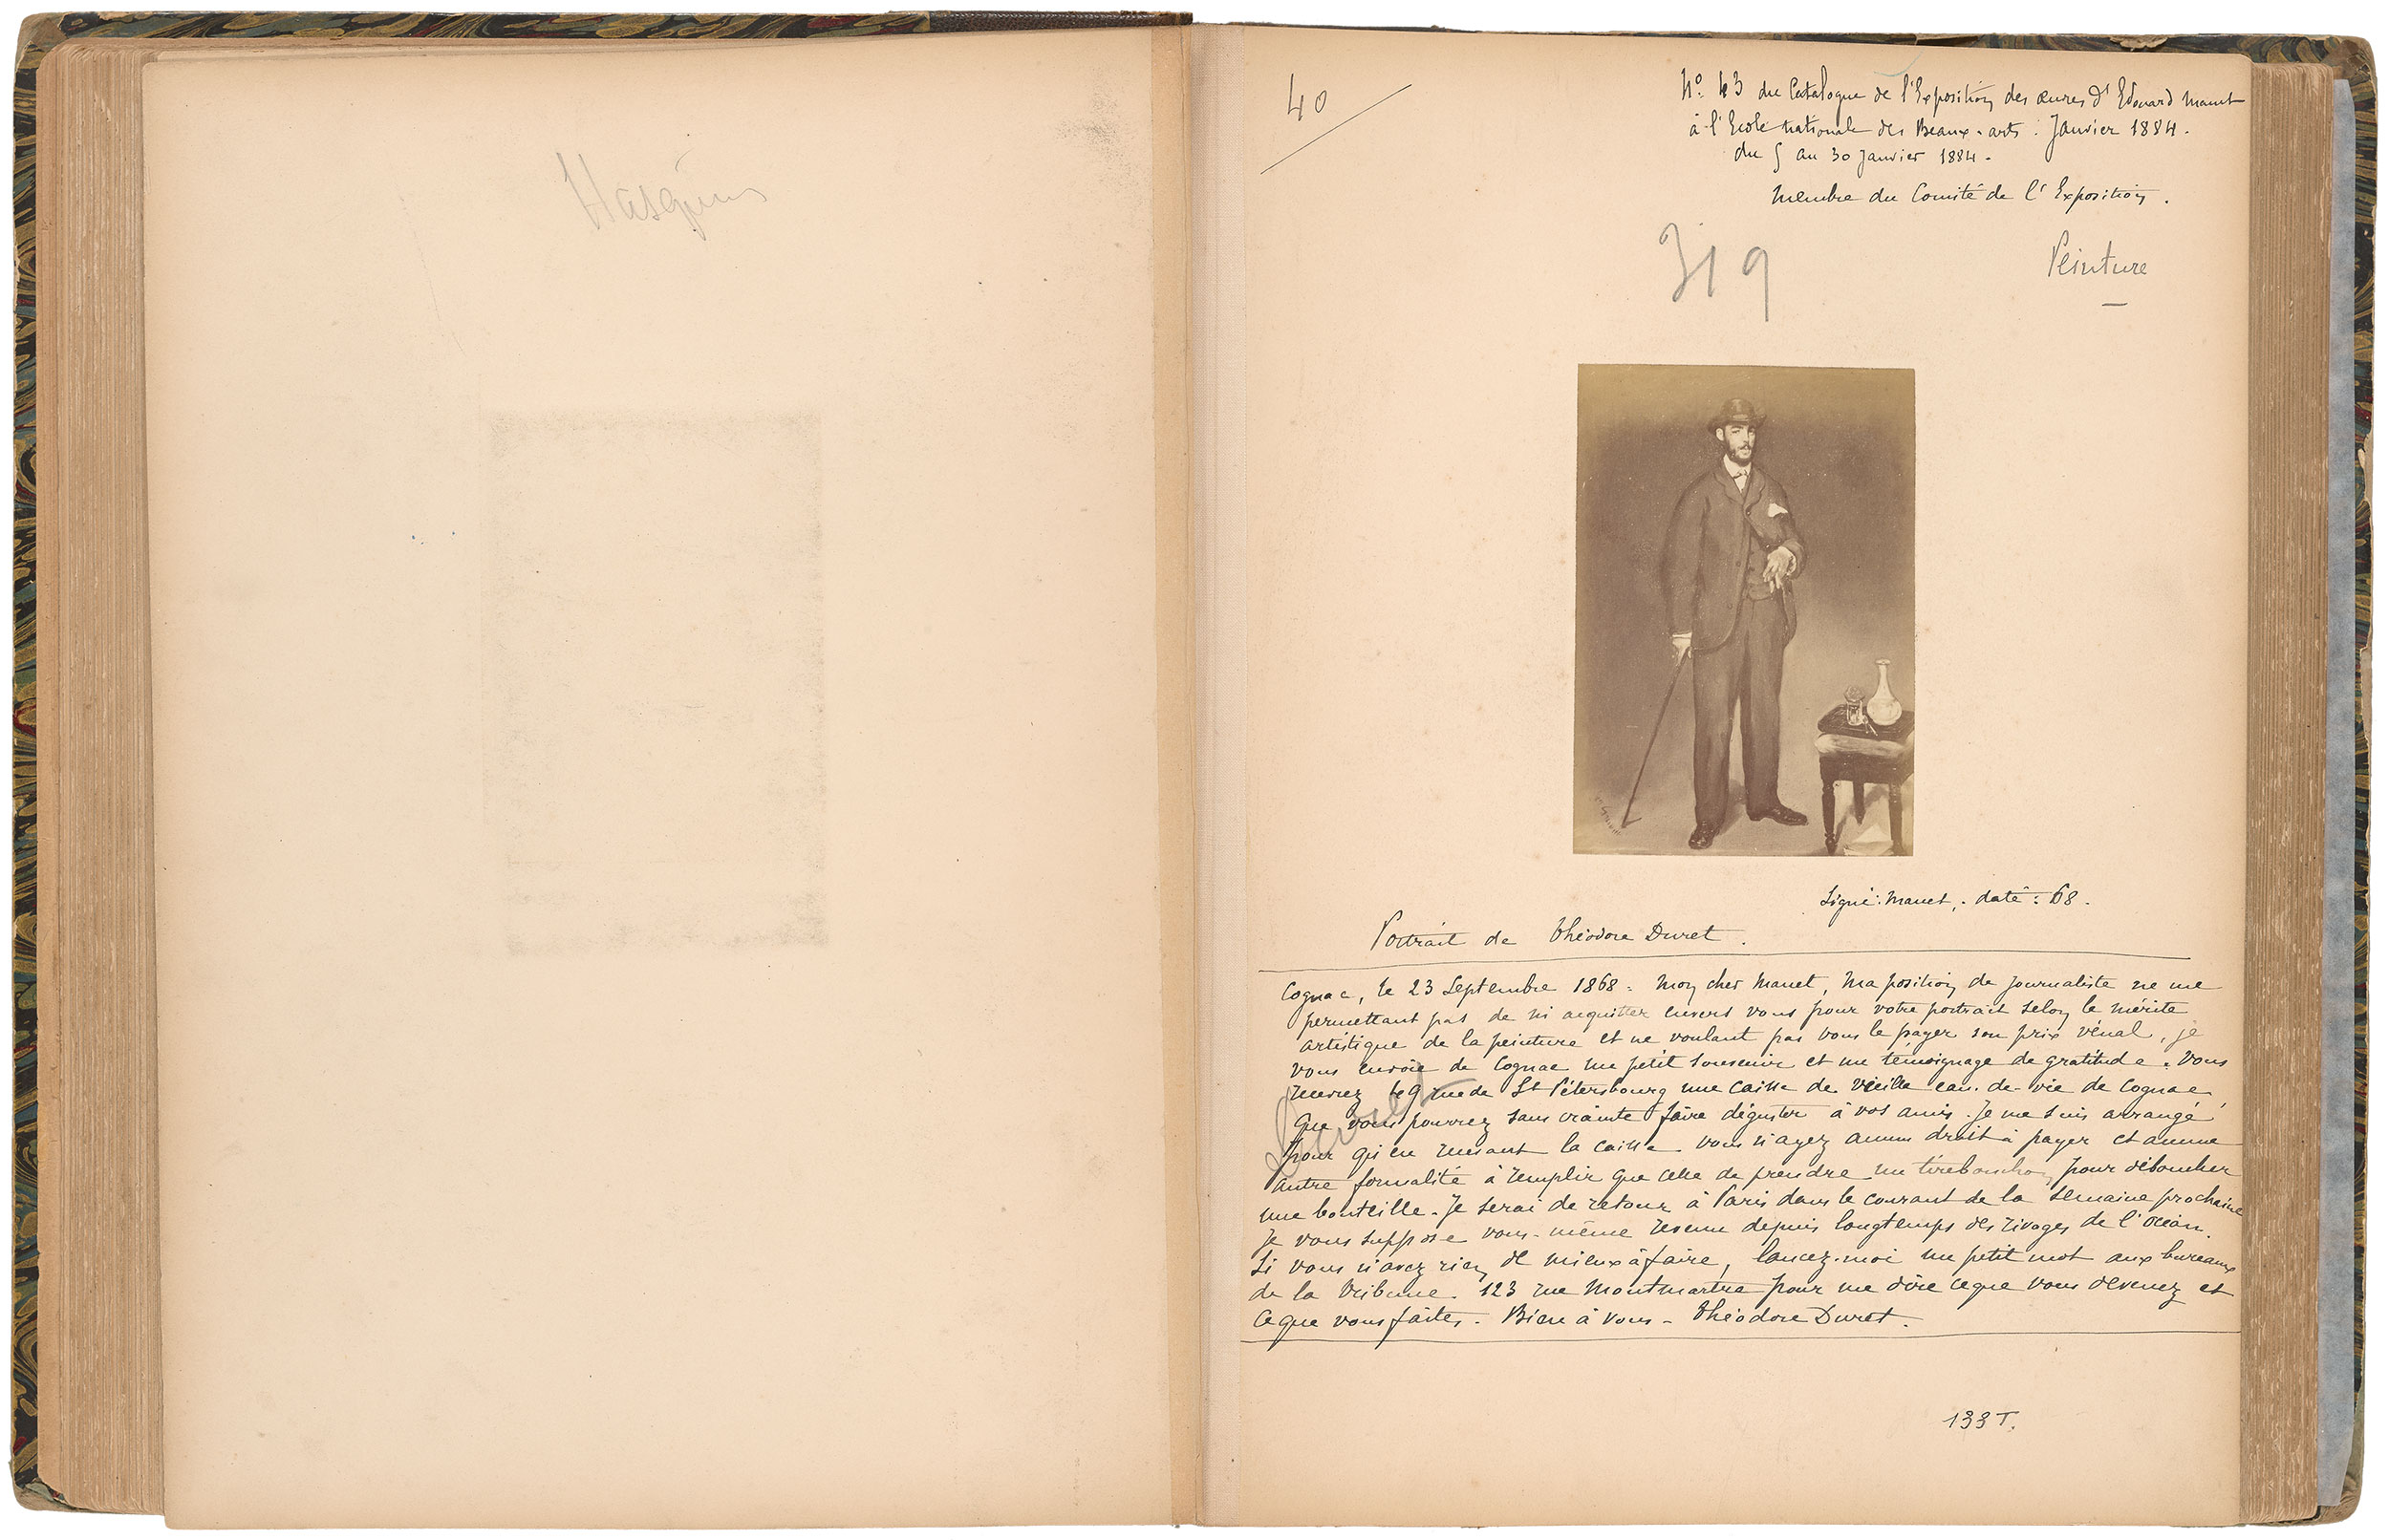 40
No. 43 du Catalogue de l'Exposition des œuvres d'Edouard Manet
à l'Ecole nationale des Beaux-arts. Janvier 1884.
du 5 au 30 Janvier 1884.
Membre du Comité de l'Exposition.
319
Peinture
Signé: Manet, . daté: 68.
Portrait de Théodore Duret.
Cognac, le 23 Septembre 1868. Mon cher Manet, Ma position de journaliste ne me
permettant pas de m'acquitter envers vous pour votre portrait selon le mérite
artistique de la peinture et ne voulant pas vous le payer son prix vénal, je
vous envoie de Cognac un petit souvenir et un témoignage de gratitude. Vous
recevrez 49 rue de St Pétersbourg une caisse de vieille eau-de-vie de Cognac,
que vous pourrez sans crainte faire déguster à vos amis. Je me suis arrangé
pour qu'en recevant la caisse vous n'ayez aucun droit à payer et aucune
autre formalité à remplir que celle de prendre un tirebouchon pour déboucher
une bouteille. Je serai de retour à Paris dans le courant de la semaine prochaine
Je vous suppose vous-même revenu depuis longtemps des rivages de l'océan.
Si vous n'avez rien de mieux à faire, lancez-moi un petit mot aux bureaux
de la Tribune. 123 rue Montmartre pour me dire ce que vous devenez et
ce que vous faites. Bien à vous - Théodore Duret.
133 T.